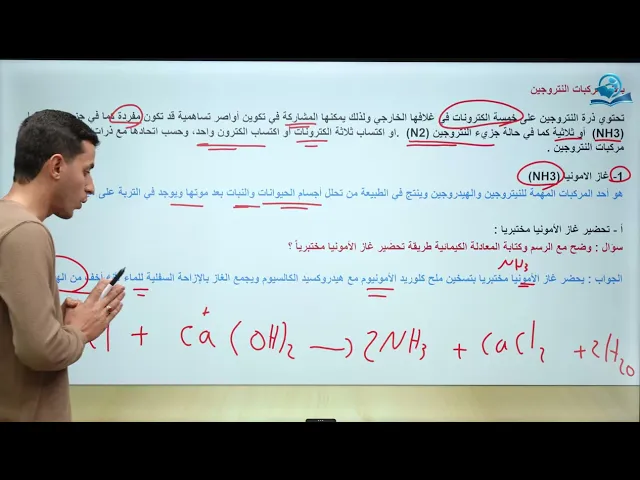 مركبات النتروجين
تحتوي ذرة النتروجين على خمسة الكترونات في غلافها الخارجي ولذلك يمكنها المشاركة في تكوين أواصر تساهمية قد تكون مفردة كما في
(NH3) أو ثلاثية كما في حالة جزيء النتروجين (N2) . او اكتساب ثلاثة الكترونات او اكتساب الكترون واحد، وحسب اتحادها مع ذرات
مركبات النتروجين .
1- غاز الامونيا (NH3)
هو أحد المركبات المهمة للنيتروجين والهيدروجين وينتج في الطبيعة من تحلل أجسام الحيوانات والنبات بعد موتها ويوجد في التربة على
أ - تحضير غاز الأمونيا مختبريا :
سؤال : وضح مع الرسم وكتابة المعادلة الكيمائية طريقة تحضير غاز الأمونيا مختبرياً ؟
NH3
الجواب : يحضر غاز الأمونيا مختبريا بتسخين ملح كلوريد الامونيوم مع هيدروكسيد الكالسيوم ويجمع الغاز بالإزاحة السفلية للماء أخف من
+ Ca (OH)2 → 2NH3 + CaCl2 + 2H2O